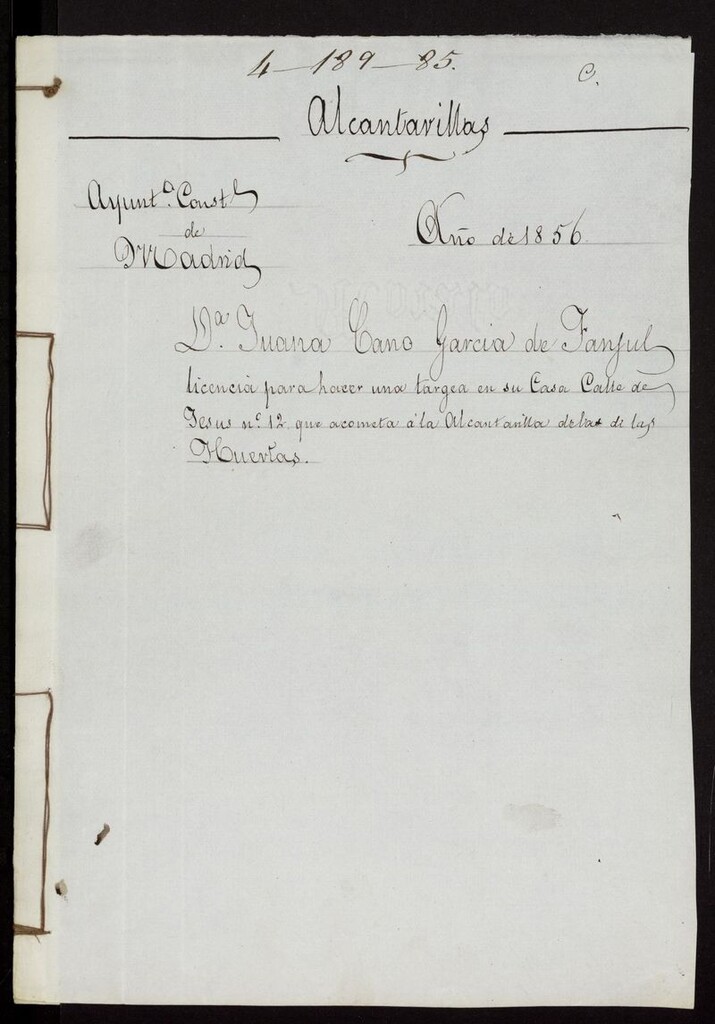 4-189-85.
C.
Alcantarillas
Ayunt.º Const.l
de
Madrid
Año de 1856.
D.ª Juana Cano Garcia de Fanjul
licencia para hacer una targea en su Casa Calle de
Jesus nº 12 que acometa á la Alcantarilla de la de las
Huertas.